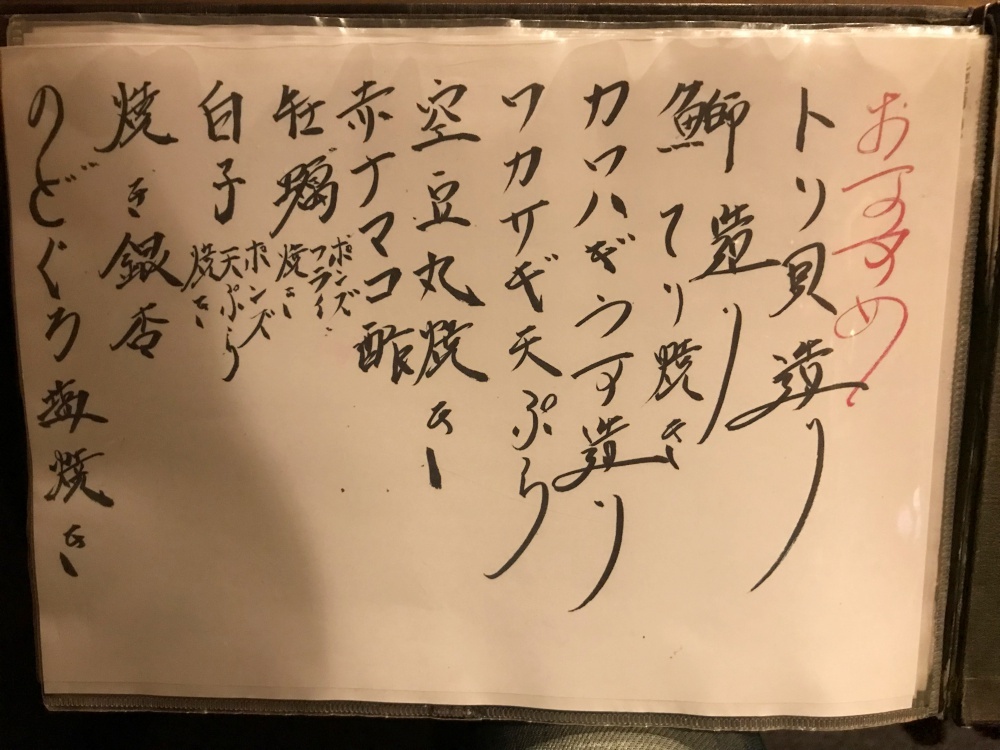 おすすめ
トリ貝造り
鰤造り
てり焼き
カワハギうす造り
ワカサギ天ぷら
空豆丸焼き
赤ナマコ酢
牡蠣
ポンズ
フライ
焼き
白子
ポンズ
天ぷら
焼き
焼き銀杏
のどぐろ塩焼き